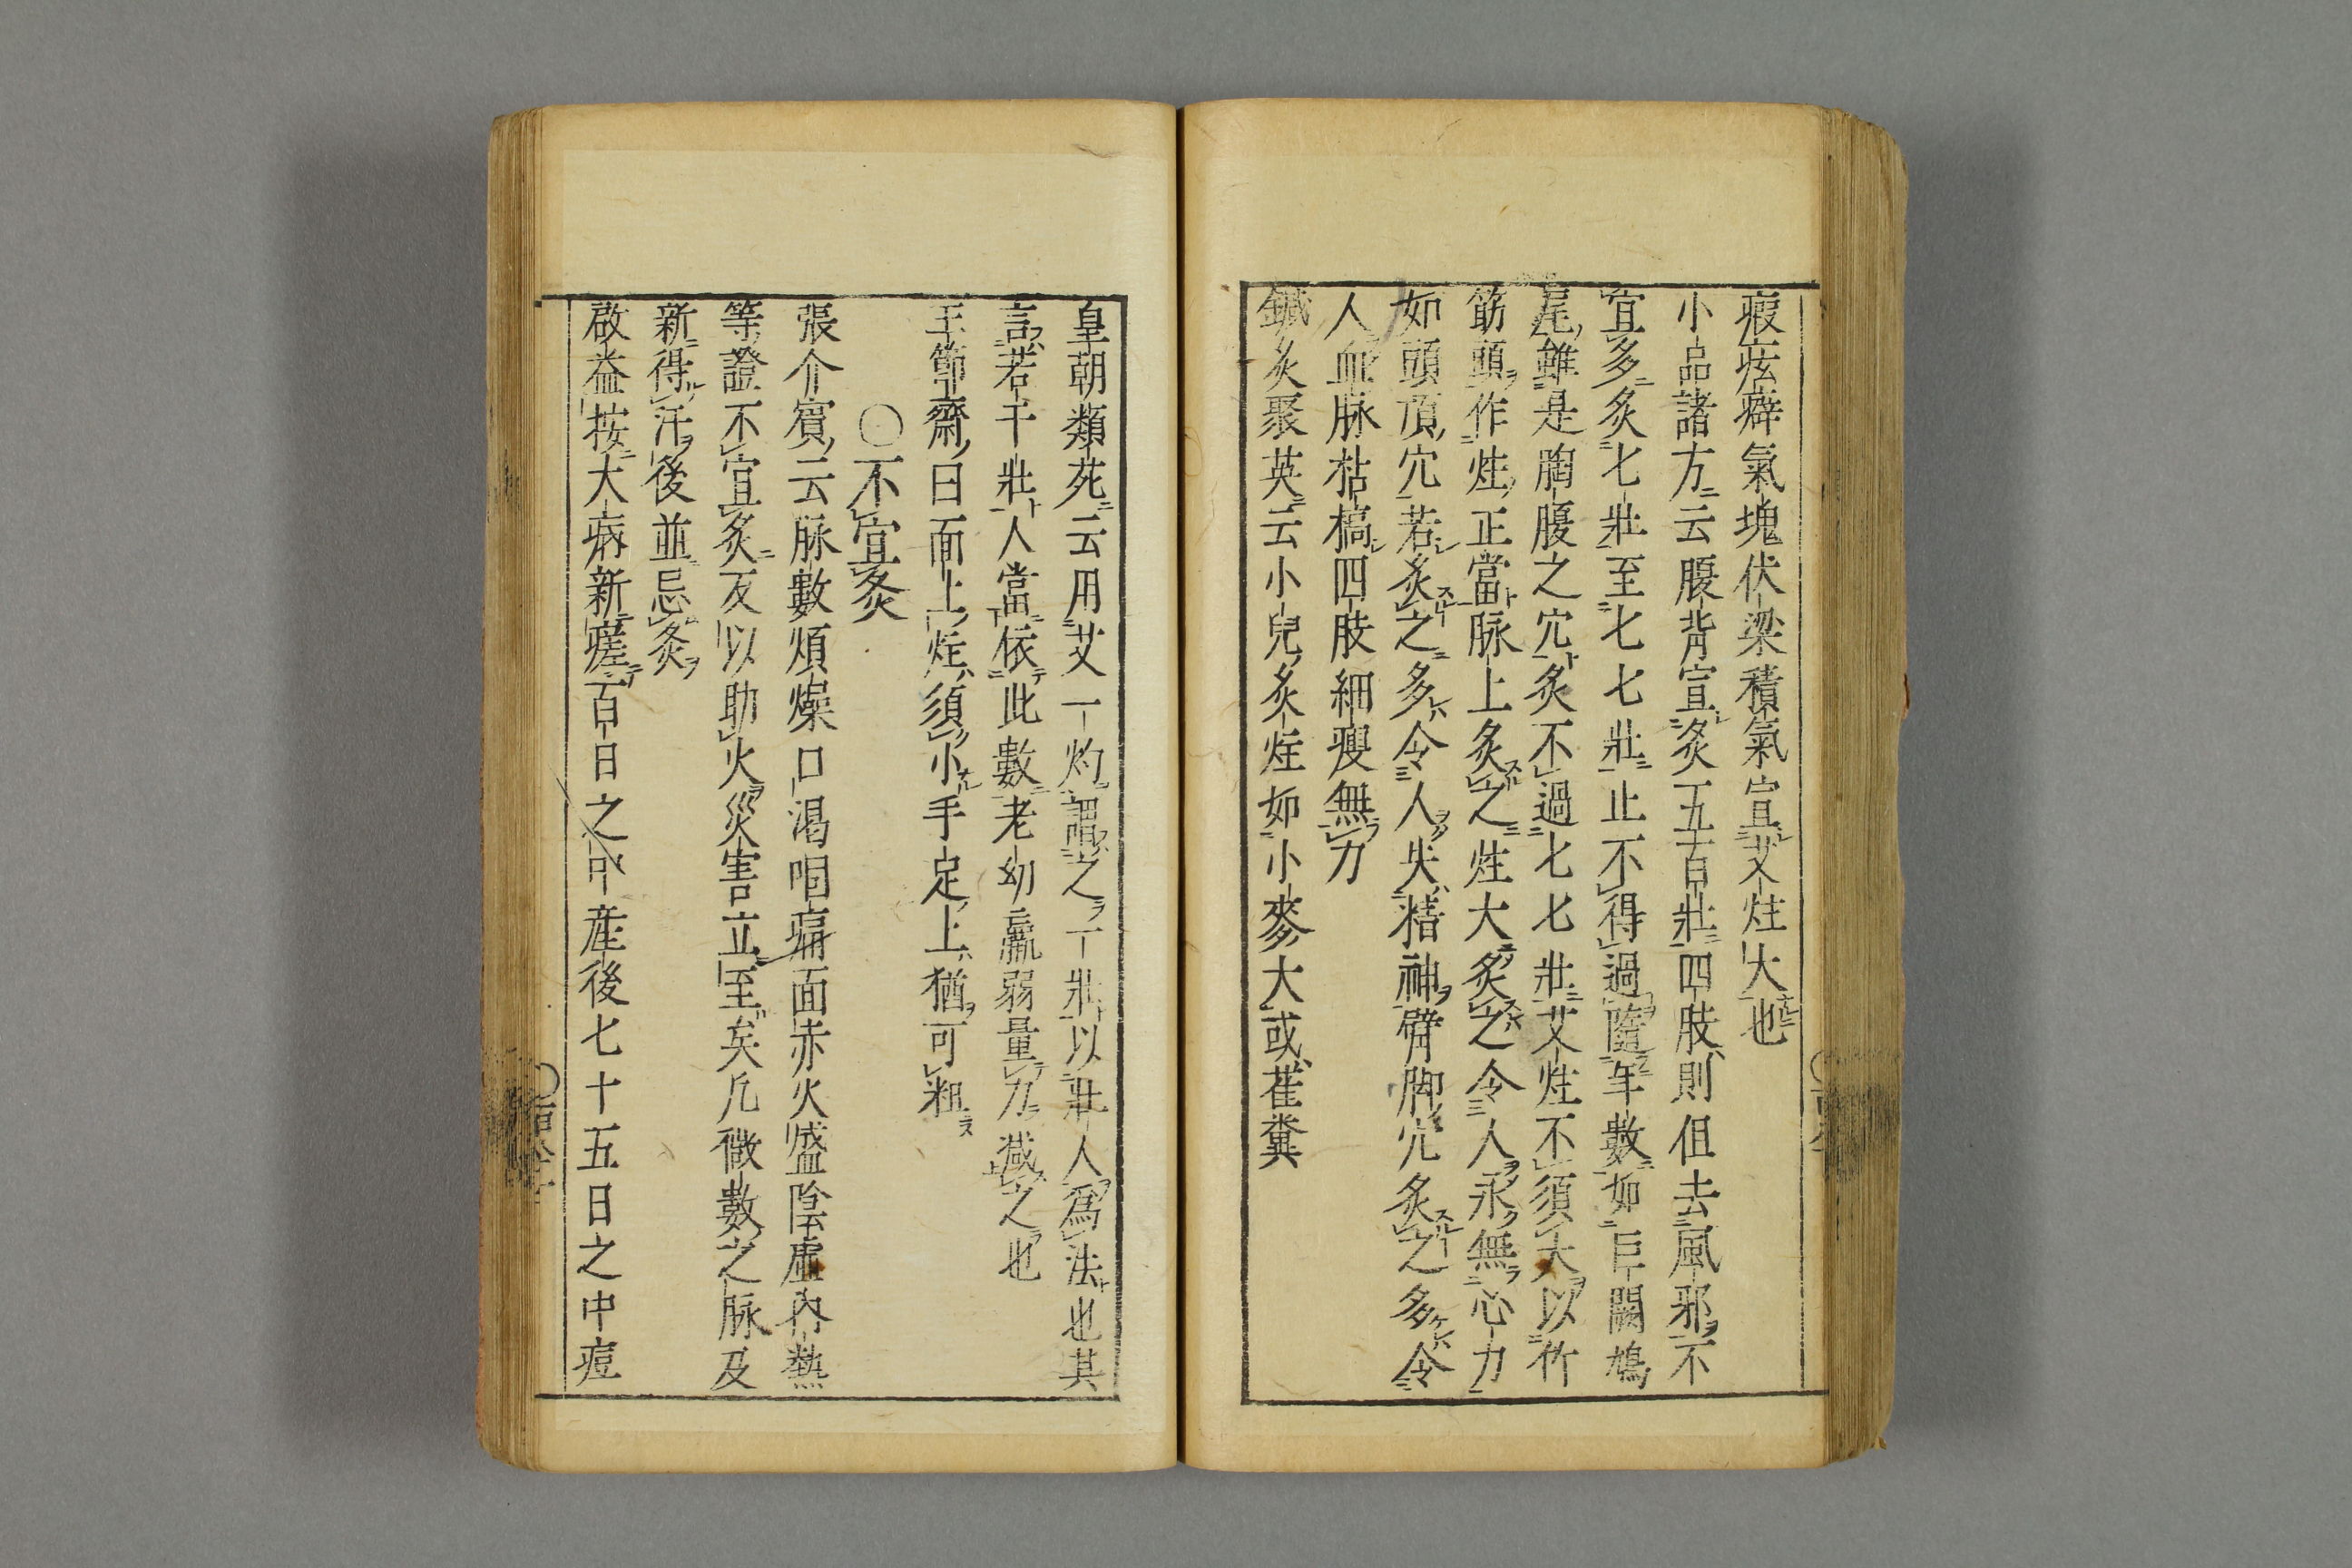 瘕痃癖氣塊伏梁積氣宜艾炷大也
小品諸方云腹背宜灸五百壯四肢則但去風邪不
宜多灸七壯至七七壯止不得過隨年數如巨闕鳩
尾雖是胸腹之穴灸不過七七壯艾炷不須大以竹
筯頭作炷正當脉上灸之炷大灸之令人永無心力
如頭頂穴若灸之多令人失精神臂脚穴灸之多令
人血脉枯槁四肢細瘦無力
鍼灸聚英云小兒灸炷如小麥大或雀糞
皇朝類苑云用艾一灼謂之一壯以壯人爲法也其
言若干壯人當依此數老幼羸弱量力減之也
王節齋曰面上炷須小手足上猶可粗
〇不宜灸
張介賓云脉數煩燥口渴咽痛面赤火盛陰虛內熱
等證不宜灸反以助火災害立至矣凡微數之脉及
新得汗後並忌灸
啟益按大病新瘥百日之中產後七十五日之中痘